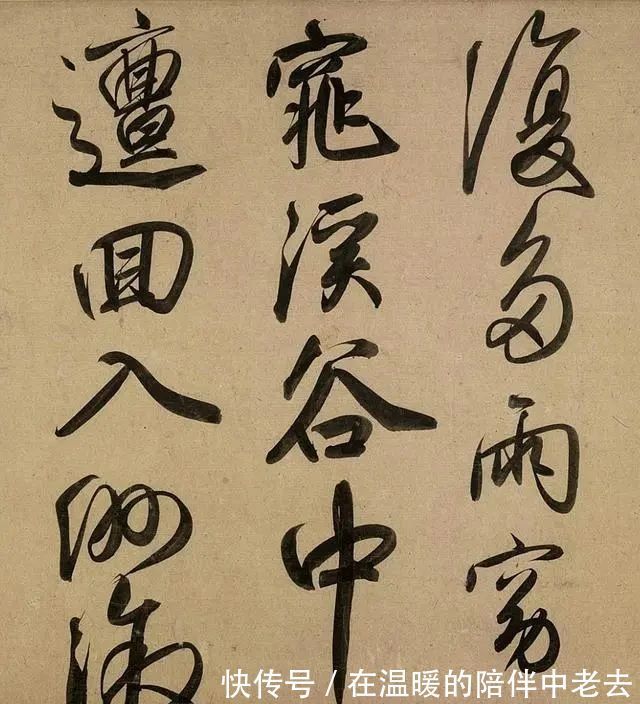 復多雨窈
窕溪谷中
邅回入洲漵
快传号/在温暖的陪伴中老去